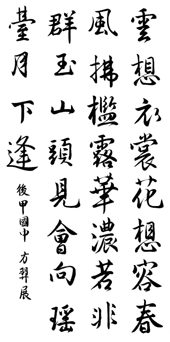 雲想衣裳花想容春
風拂檻露華濃若非
群玉山頭見會向瑤
臺月下逢
後甲國中 方羿展